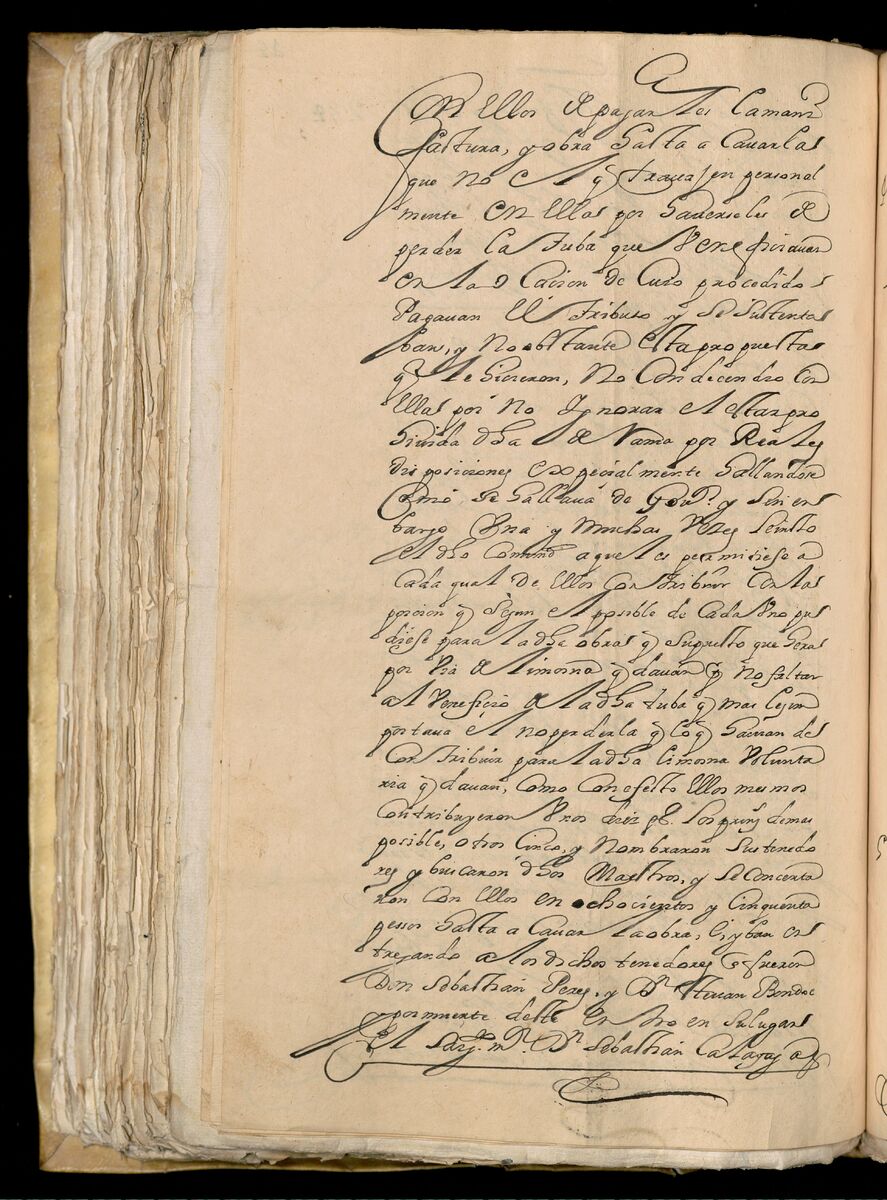 con ellos de pagarles la manu
factura, y obra hasta acavarlas
que no el q̃ travajen personal
mente en ellas por haverseles de
perder la tuba que veneficiavan
en la ocacion de cuio procedido
Pagavan el tributo y se sustenta
ban, y no obstante esta propuesta
q̃ le hicieron, no condecendio con
ellas por no Ygnorar el estar pro
hivida dha de rama por Reales
disposiciones expecialmente hallandose
como se hallava de Govor. y sin en
bargo Una y muchas vezes insto
el dho comun a que les permitiese a
cada qual de ellos contribuir con la
porcion q̃ segun el posible de cada Uno pu
diese para la dha obra q̃ supuesto que hera
por via de limosna q̃ davan y no faltar
al veneficio de la dha tuba q̃ mas les im
portava el no perderla q̃ lo q̃ havian de
contribuir para la dha limosna volunta
ria q̃ davan, como con efecto ellos mesmos
contribuyeron Unos diez ps. los prinsˢ de mas
posible, otros cinco, y nombraron sus tenedo
res y buscaron dhos Maestros, y se concerta
ron con ellos en ochocientos y cinquenta
pessos hasta acavar la obra, y iban en
tregando a los dichos tenedores q̃ fueron
Don Sebasthian Peres, y Dn. Stevan Bondoc
y por muerte deste entro en su lugar
el Sarjto. mr. Dn Sebasthian Catagay